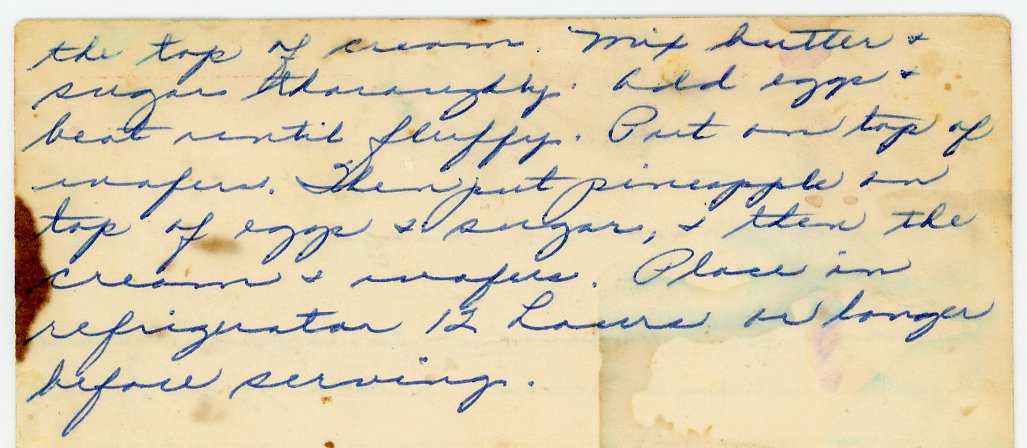 the top of cream. Mix butter &
sugar thoroughly. Add eggs &
beat until fluffy. Put on top of
wafers. Then put pineapple on
top of eggs & sugar, & then the
cream & wafers. Place in
refrigerator 12 hours or longer
before serving.